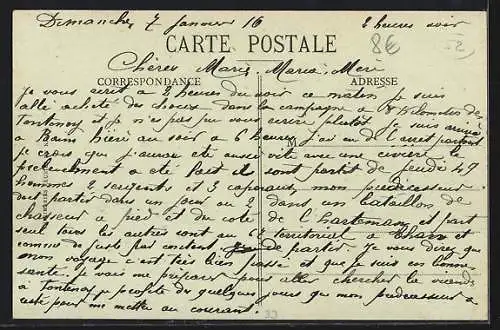 Dimanche 7 Janvier 16 2 heures soir
8€
CARTE POSTALE
Chères Marie, Maria, Mere
CORRESPONDANCE ADRESSE
Je vous ecrit a 2 heures du soir ce matin je suis
allé acheté des choux dans la campagne a 8 Kilometres de
Fontenoy et je n'es pas pu vous ecrire plutot je suis arrivé
a Bains hier au soir a 6 heures j'ai vu de l'
je crois que j'aurai ete aussi vite avec une civière le
prelevement a ete fait il sont partit de jeudi 49
hommes 2 sergents et 3 caporaux, mon predecesseur
doit partir dans un jour ou 2 dans un bataillon de
chasseur a pied et du cote de l'hartemann et part
seul tous les autres sont au territorial a
comme de juste pas content de partir. Je vous direz que
mon voyage c'est très bien passé et que je suis en bonne
sante. je vais me preparer pour aller chercher la viande
a Fontenoy je profite des quelques jours que mon predecesseur a
resté pour me mettre au courant.
33